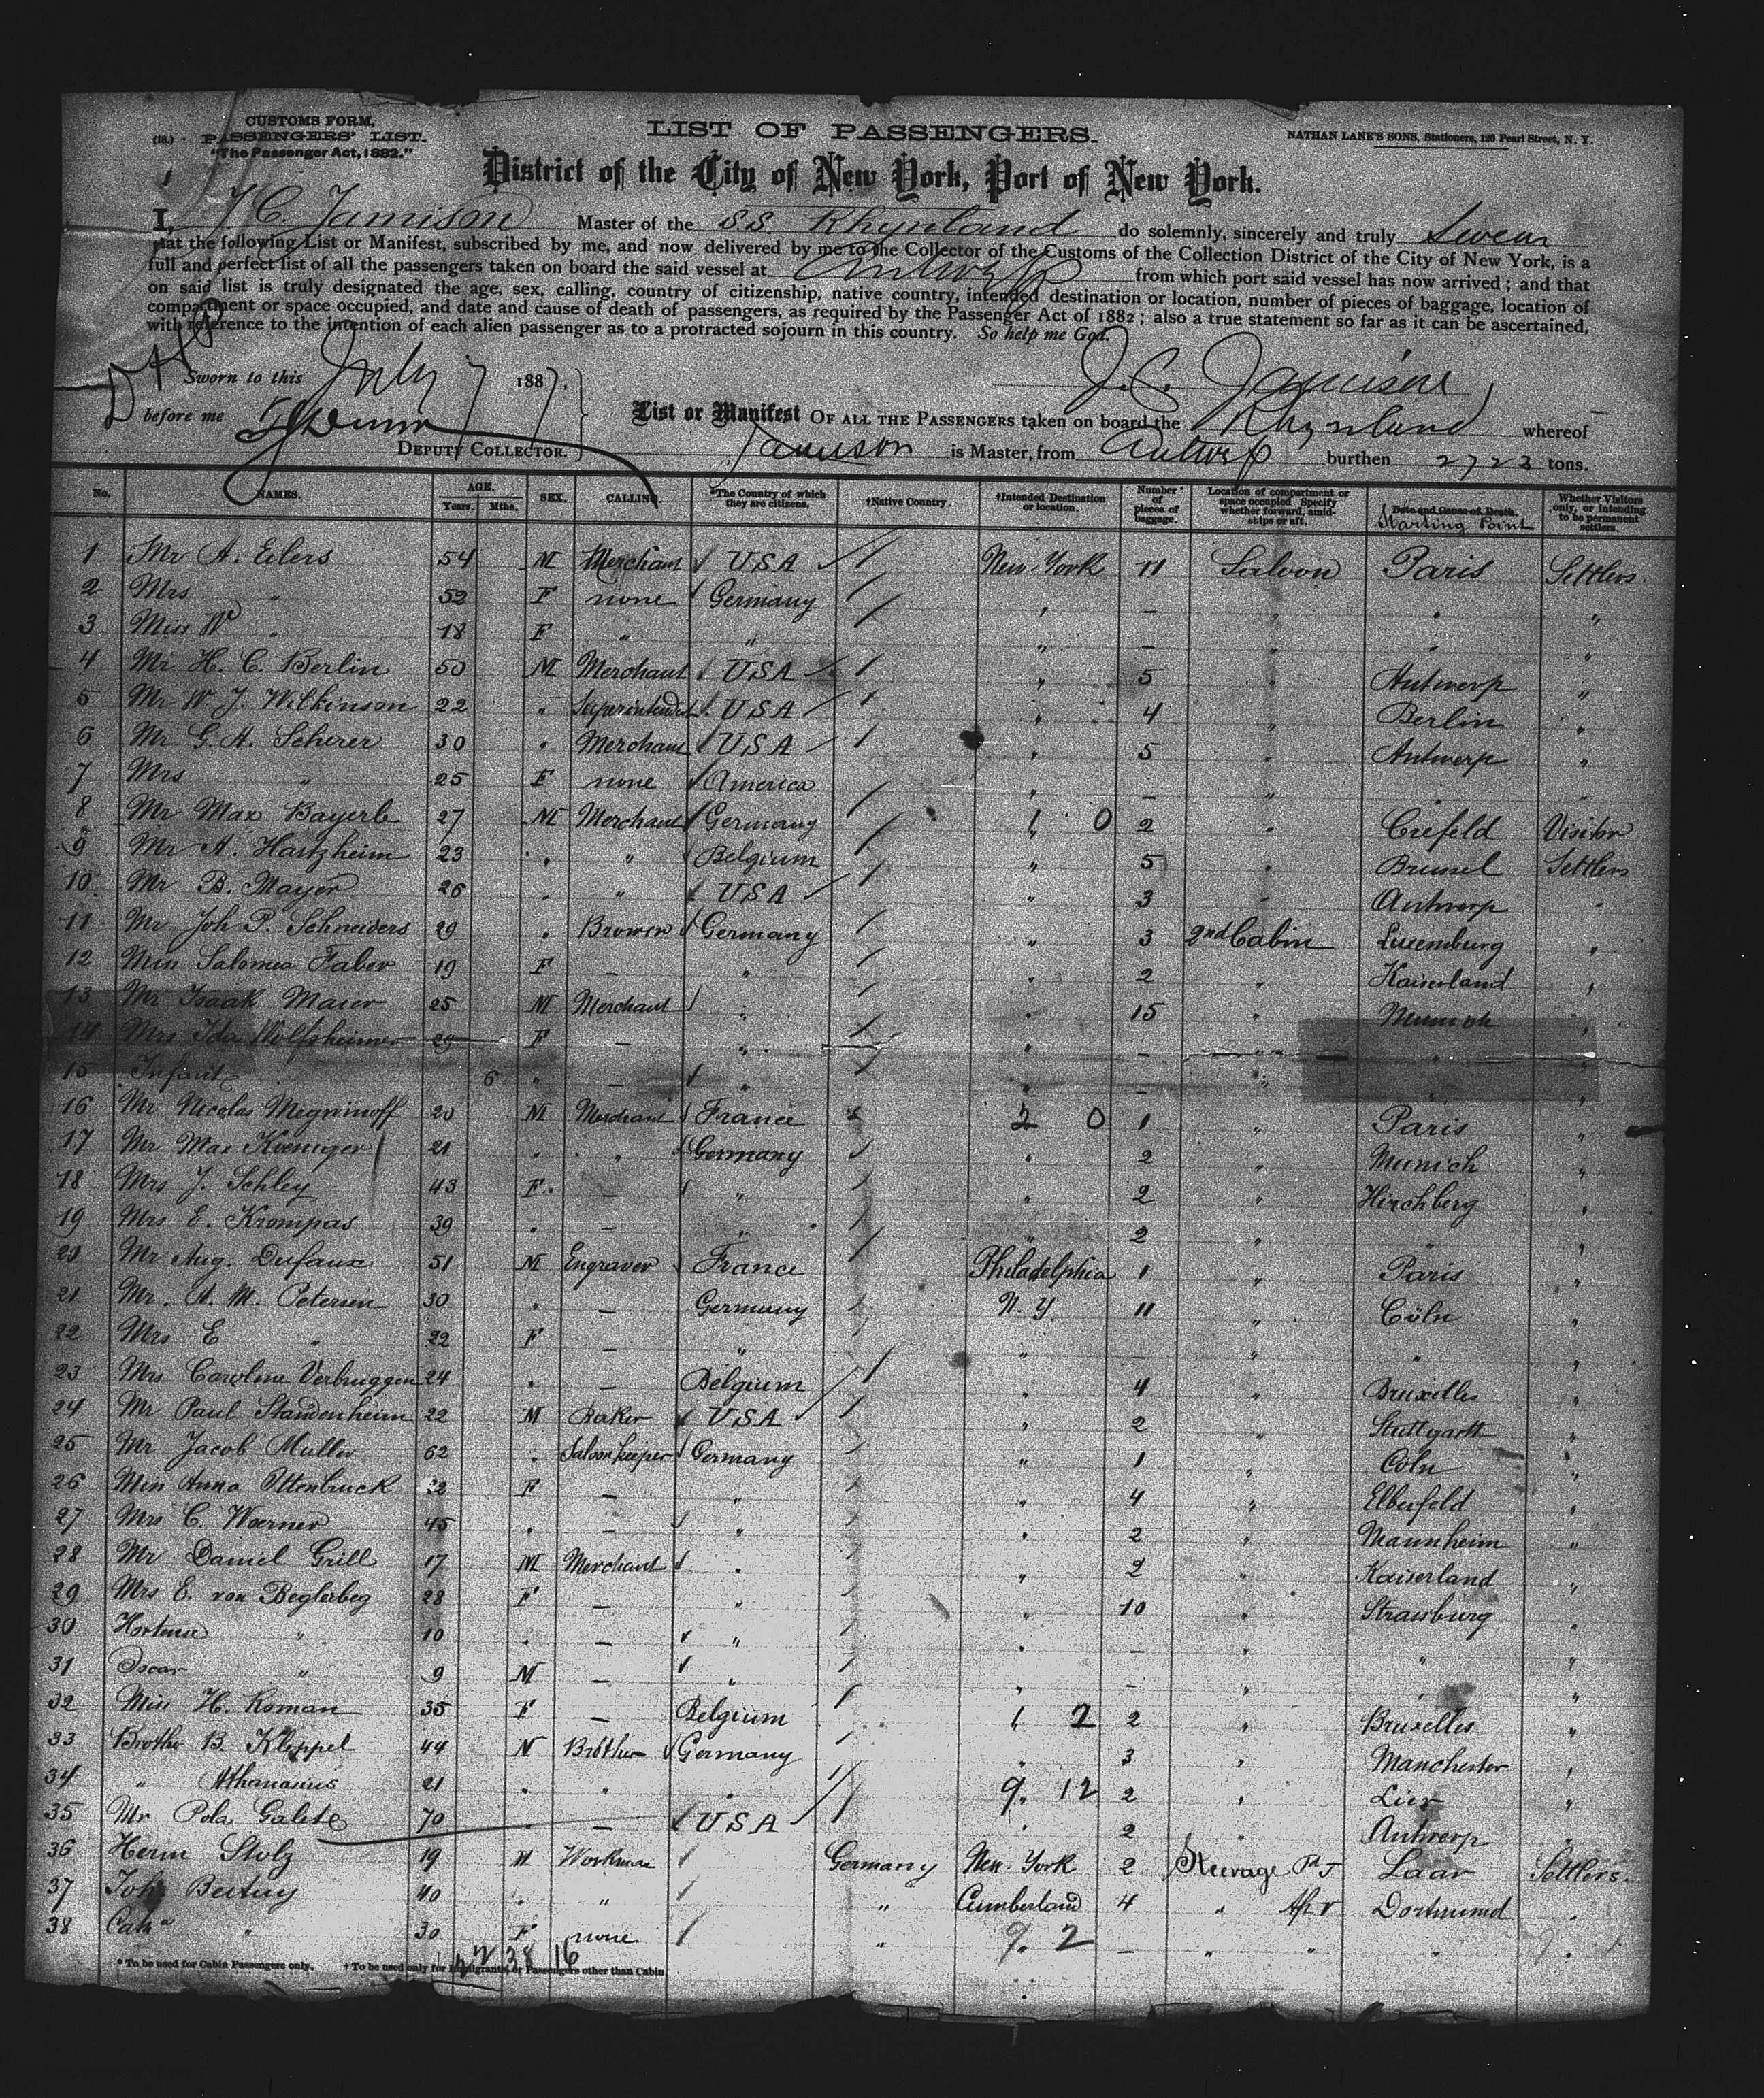 CUSTOMS FORM,
(18.) PASSENGERS' LIST.
"The Passenger Act, 1882."
LIST OF PASSENGERS.
NATHAN LANE'S SONS, Stationers, 136 Pearl Street, N. Y.
District of the City of New York, Port of New York.
I, J C. Jamison Master of the S.S. Rhynland do solemnly, sincerely and truly Swear
that the following List or Manifest, subscribed by me, and now delivered by me to the Collector of the Customs of the Collection District of the City of New York, is a
full and perfect list of all the passengers taken on board the said vessel at Antwerp from which port said vessel has now arrived; and that
on said list is truly designated the age, sex, calling, country of citizenship, native country, intended destination or location, number of pieces of baggage, location of
compartment or space occupied, and date and cause of death of passengers, as required by the Passenger Act of 1882; also a true statement so far as it can be ascertained,
with reference to the intention of each alien passenger as to a protracted sojourn in this country. So help me God.
Sworn to this July 7 1887.
J. C. Jamison
before me
DEPUTY COLLECTOR.
List or Manifest OF ALL THE PASSENGERS taken on board the Rhynland whereof
Jamison is Master, from Antwerp burthen 2723 tons.
No. NAMES. AGE. Years. Mths. SEX. CALLING. *The Country of which they are citizens. †Native Country. †Intended Destination or location. Number of pieces of baggage. Location of compartment or space occupied. Specify whether forward, amidships or aft. Date and Cause of Death. Starting Point Whether Visitors only, or intending to be permanent settlers.
1 Mr A. Eilers 54 M Merchant USA New-York 11 Saloon Paris Settlers
2 Mrs " 52 F none Germany " — " " "
3 Miss W " 18 F " " " — " " "
4 Mr H. C. Berlin 50 M Merchant USA " 5 " Antwerp "
5 Mr W. J. Wilkinson 22 " Superintendent USA " 4 " Berlin "
6 Mr G. A. Scherer 30 " Merchant USA " 5 " Antwerp "
7 Mrs " 25 F none America " — " " "
8 Mr Max Bayerle 27 M Merchant Germany 1 0 2 " Crefeld Visitor
9 Mr A. Hartzheim 23 " " Belgium " 5 " Brussel Settlers
10 Mr B. Mayer 26 " " USA " 3 " Antwerp "
11 Mr Joh P. Schneiders 29 " Brower Germany " 3 2nd Cabin Luxemburg "
12 Miss Salomea Faber 19 F — " " 2 " Kaiserland "
13 Mr Isaak Maier 25 M Merchant " " 15 " Munich "
14 Mrs Ida Wolfsheimer 29 F — " " — " " "
15 Infant 6 " — " " — " " "
16 Mr Nicolas Megrinoff 20 M Merchant France 2 0 1 " Paris "
17 Mr Max 21 " " Germany " 2 " Munich "
18 Mrs J. Schley 43 F. — " " 2 " Hirchberg "
19 Mrs E. Krompas 39 " — " " 2 " " "
20 Mr Aug. Dufaux 51 M Engraver France Philadelphia 1 " Paris "
21 Mr. A. M. Petersen 30 " — Germany N. Y. 11 " Cöln "
22 Mrs E " 22 F — " " — " " "
23 Mrs Caroline Verbruggen 24 " — Belgium " 4 " Bruxelles "
24 Mr Paul Standenheim 22 M Baker USA " 2 " Stuttgartt "
25 Mr Jacob Muller 62 " Saloonkeeper Germany " 1 " Coln "
26 Miss Anna Ottenbruck 22 F — " " 4 " Elberfeld "
27 Mrs C. Woerner 45 " — " " 2 " Mannheim "
28 Mr Daniel Grill 17 M Merchant " " 2 " Kaiserland "
29 Mrs E. von Beglerbeg 28 F — " " 10 " Strassburg "
30 Hortense " 10 " — " " — " " "
31 Oscar " 9 M — " " — " " "
32 Miss H. Roman 35 F — Belgium 1 2 2 " Bruxelles "
33 Brother B. Kleppel 44 M Brother Germany " 3 " Manchester "
34 " Athanasius 21 " " " 9. 12 2 " Lier "
35 Mr Pola Galete 70 " — USA " 2 " Antwerp "
36 Herm Stolz 19 M Workman Germany New-York 2 Steerage Laar Settlers.
37 Joh 40 " " " Cumberland 4 " Dortmund "
38 Cath " 30 F none " 9. 2 — " " "
42 38 16
* To be used for Cabin Passengers only. † To be used only for Immigrants, or Passengers other than Cabin